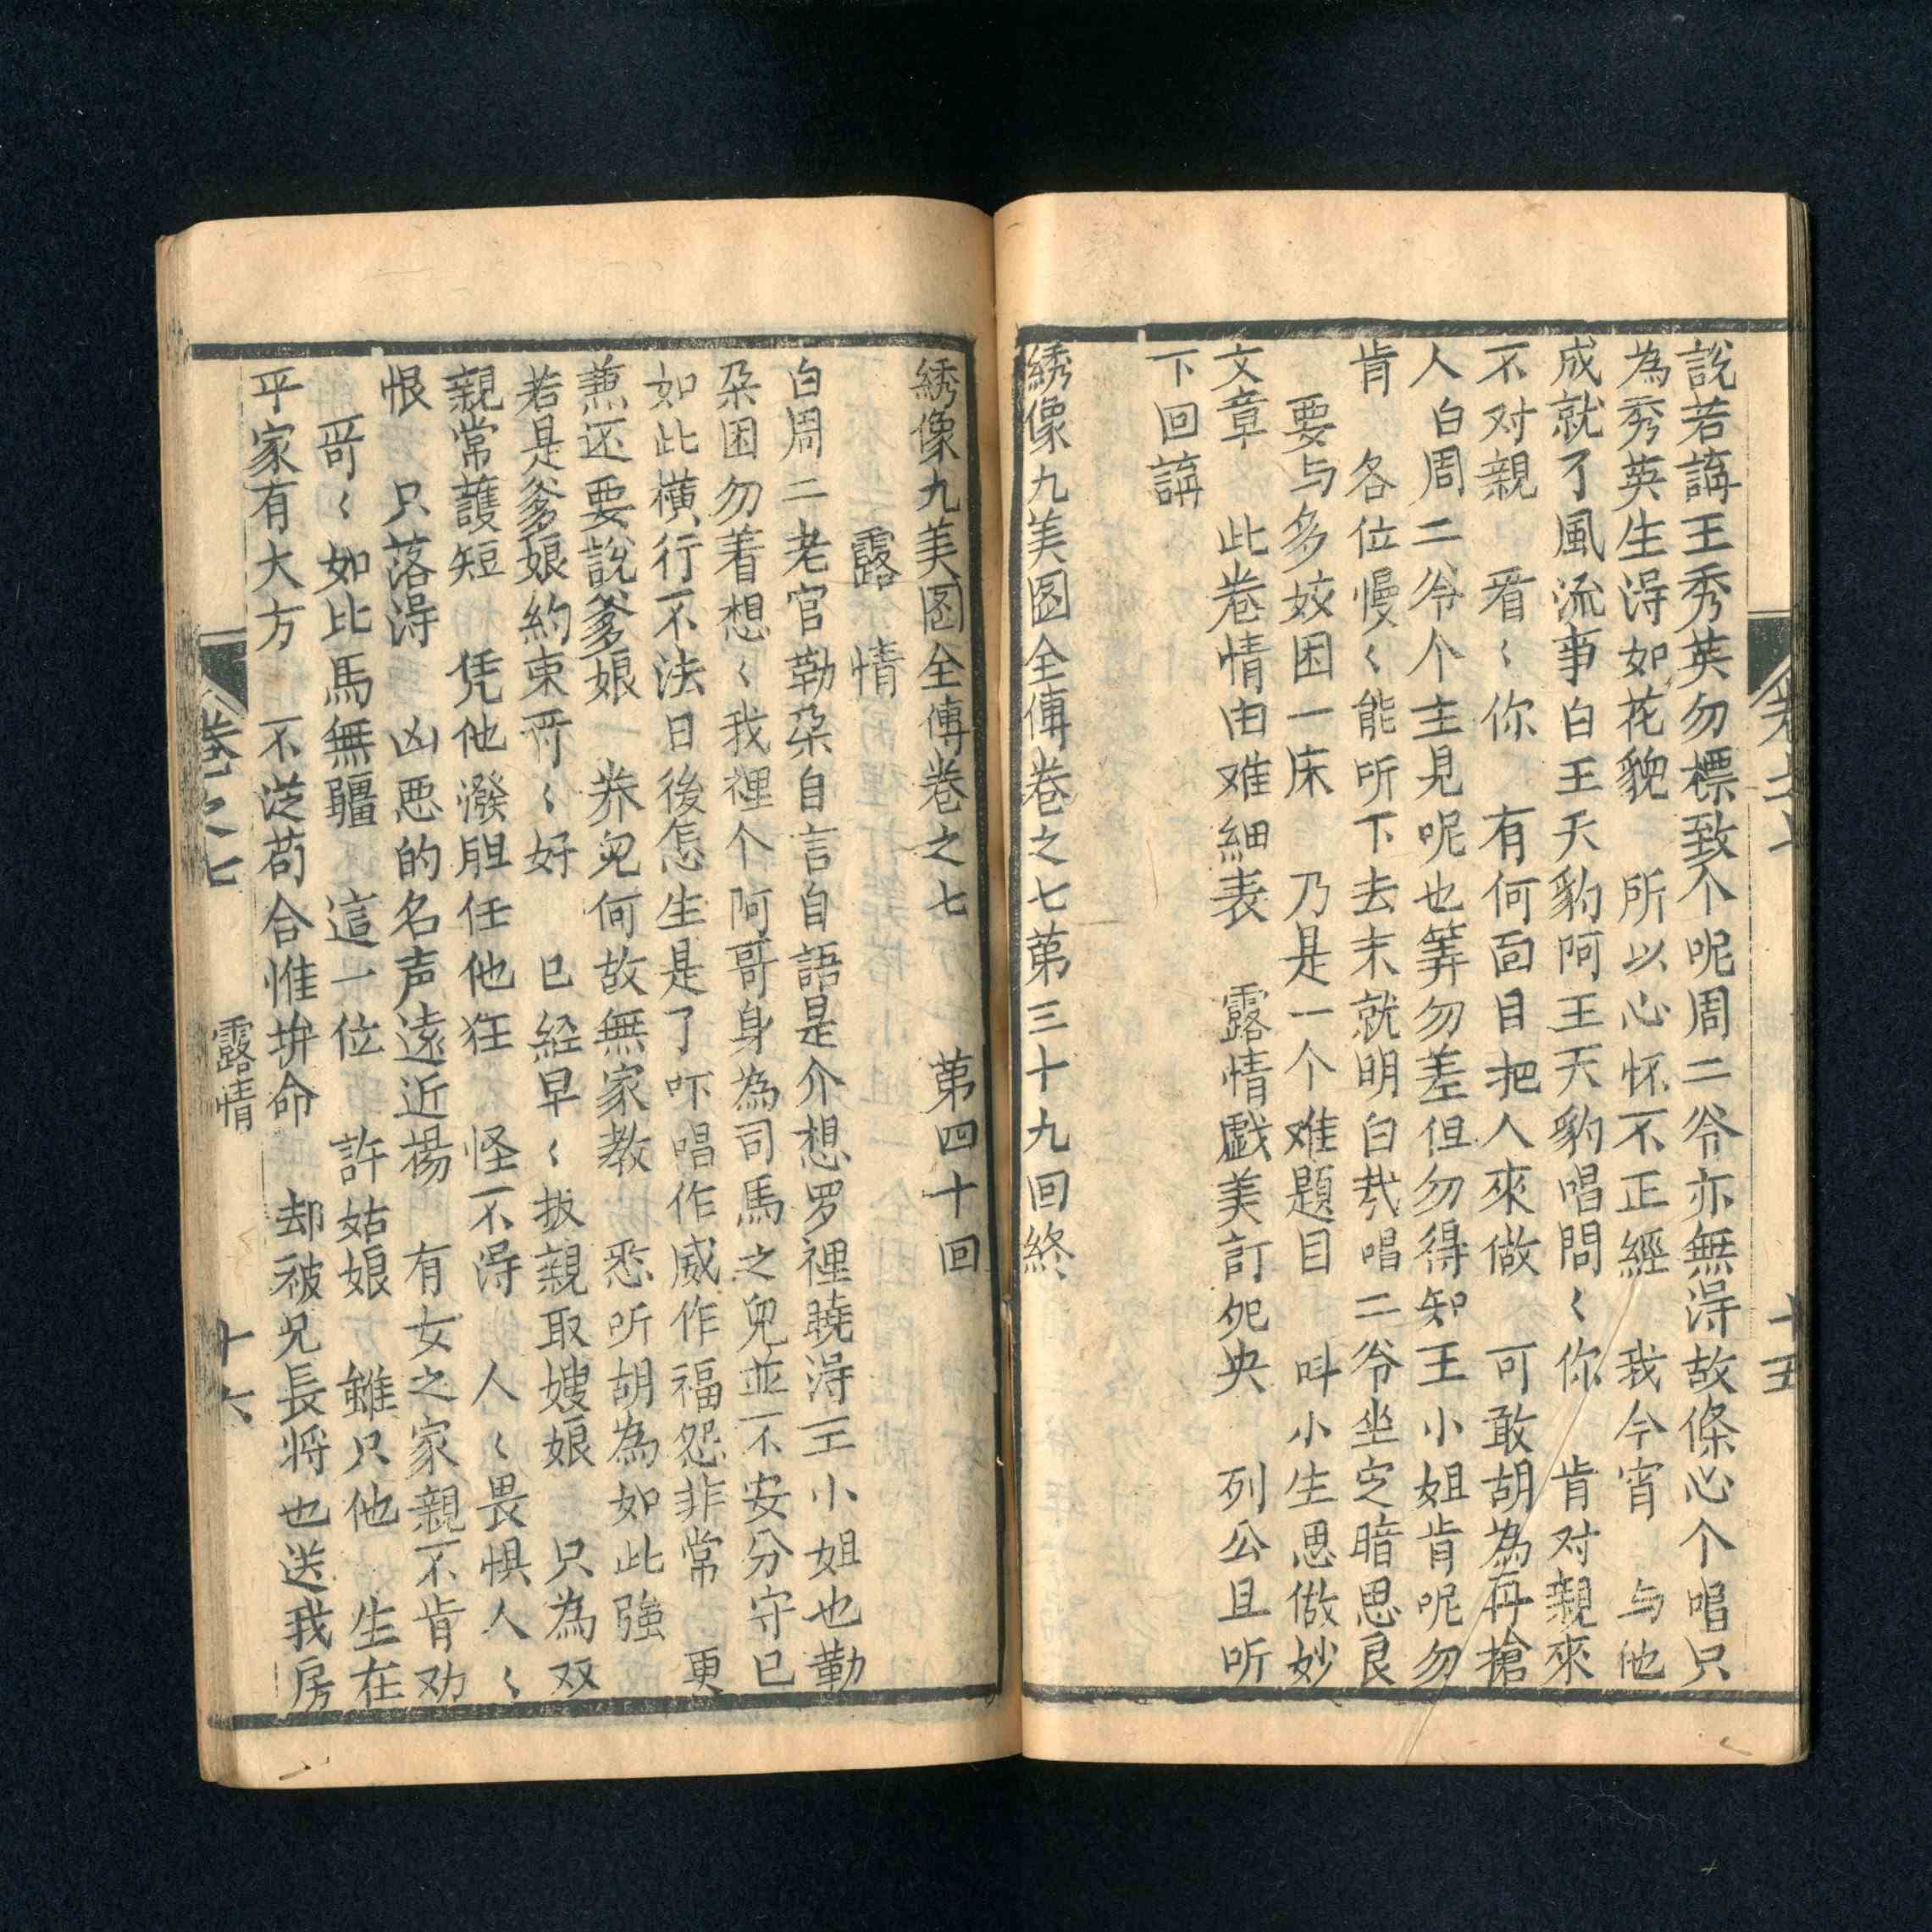 說若講王秀英勿標致个呢周二爷亦無淂故條心个唱只
為秀英生淂如花貌　所以心怀不正經　我今宵　与他
成就了風流事白王天豹阿王天豹唱問〻你　肯对親來
不对親　看〻你　有何面目把人來做　可敢胡為再搶
人白周二爷个主見呢也筭勿差但勿得知王小姐肯呢勿
肯　各位慢〻能所下去末就明白哉唱二爷坐定暗思良
要与多姣困一床　乃是一个难題目　叫小生思做妙
文章　此卷情由难細表　露情戲美訂死央　列公且听
下回講
綉像九美图全傳卷之七第三十九回終
卷之七　十五
綉像九美图全傳卷之七　第四十回
露　情
白周二老官勒朶自言自語是介想罗裡曉淂王小姐也勒
朶困勿着想〻我裡个阿哥身為司馬之兒並不安分守已
如此橫行不法日後怎生是了吓唱作威作福怨非常　更
兼还要說爹娘　养兒何故無家教　悉听胡為如此強
若是爹娘約束哥〻好　已経早〻扳親取嫂娘　只為双
親常護短　凭他潑胆任他狂　怪不淂　人〻畏惧人〻
恨　只落淂　凶悪的名声遠近揚　有女之家親不肯劝
哥〻如比馬無疆　這一位　許姑娘　雖只他　生在
平家有大方　不涖苟合惟拚命　却被兄長将也送我房
卷之七　露情　十六